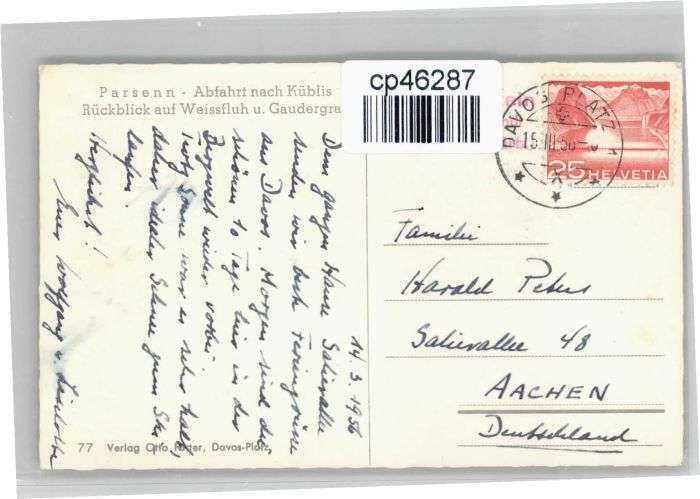 Parsenn - Abfahrt nach Küblis
Rückblick auf Weissfluh u. Gaudergra
cp46287
DAVOS PLATZ 1
15.III.56
25 HELVETIA
14.3.1956
Dem ganzen Hause Salierallee
senden wir beste Feriengrüsse
aus Davos. Morgen sind die
schönen 10 Tage hier in der
wieder vorbei.
Trotz Sonne war es sehr kalt,
daher Schnee zum Ski
laufen
Herzlichst!
Euer Wolfgang u. Liselotte
Familie
Harald Peters
Salierallee 48
AACHEN
Deutschland
77 Verlag Otto Furter, Davos-Platz